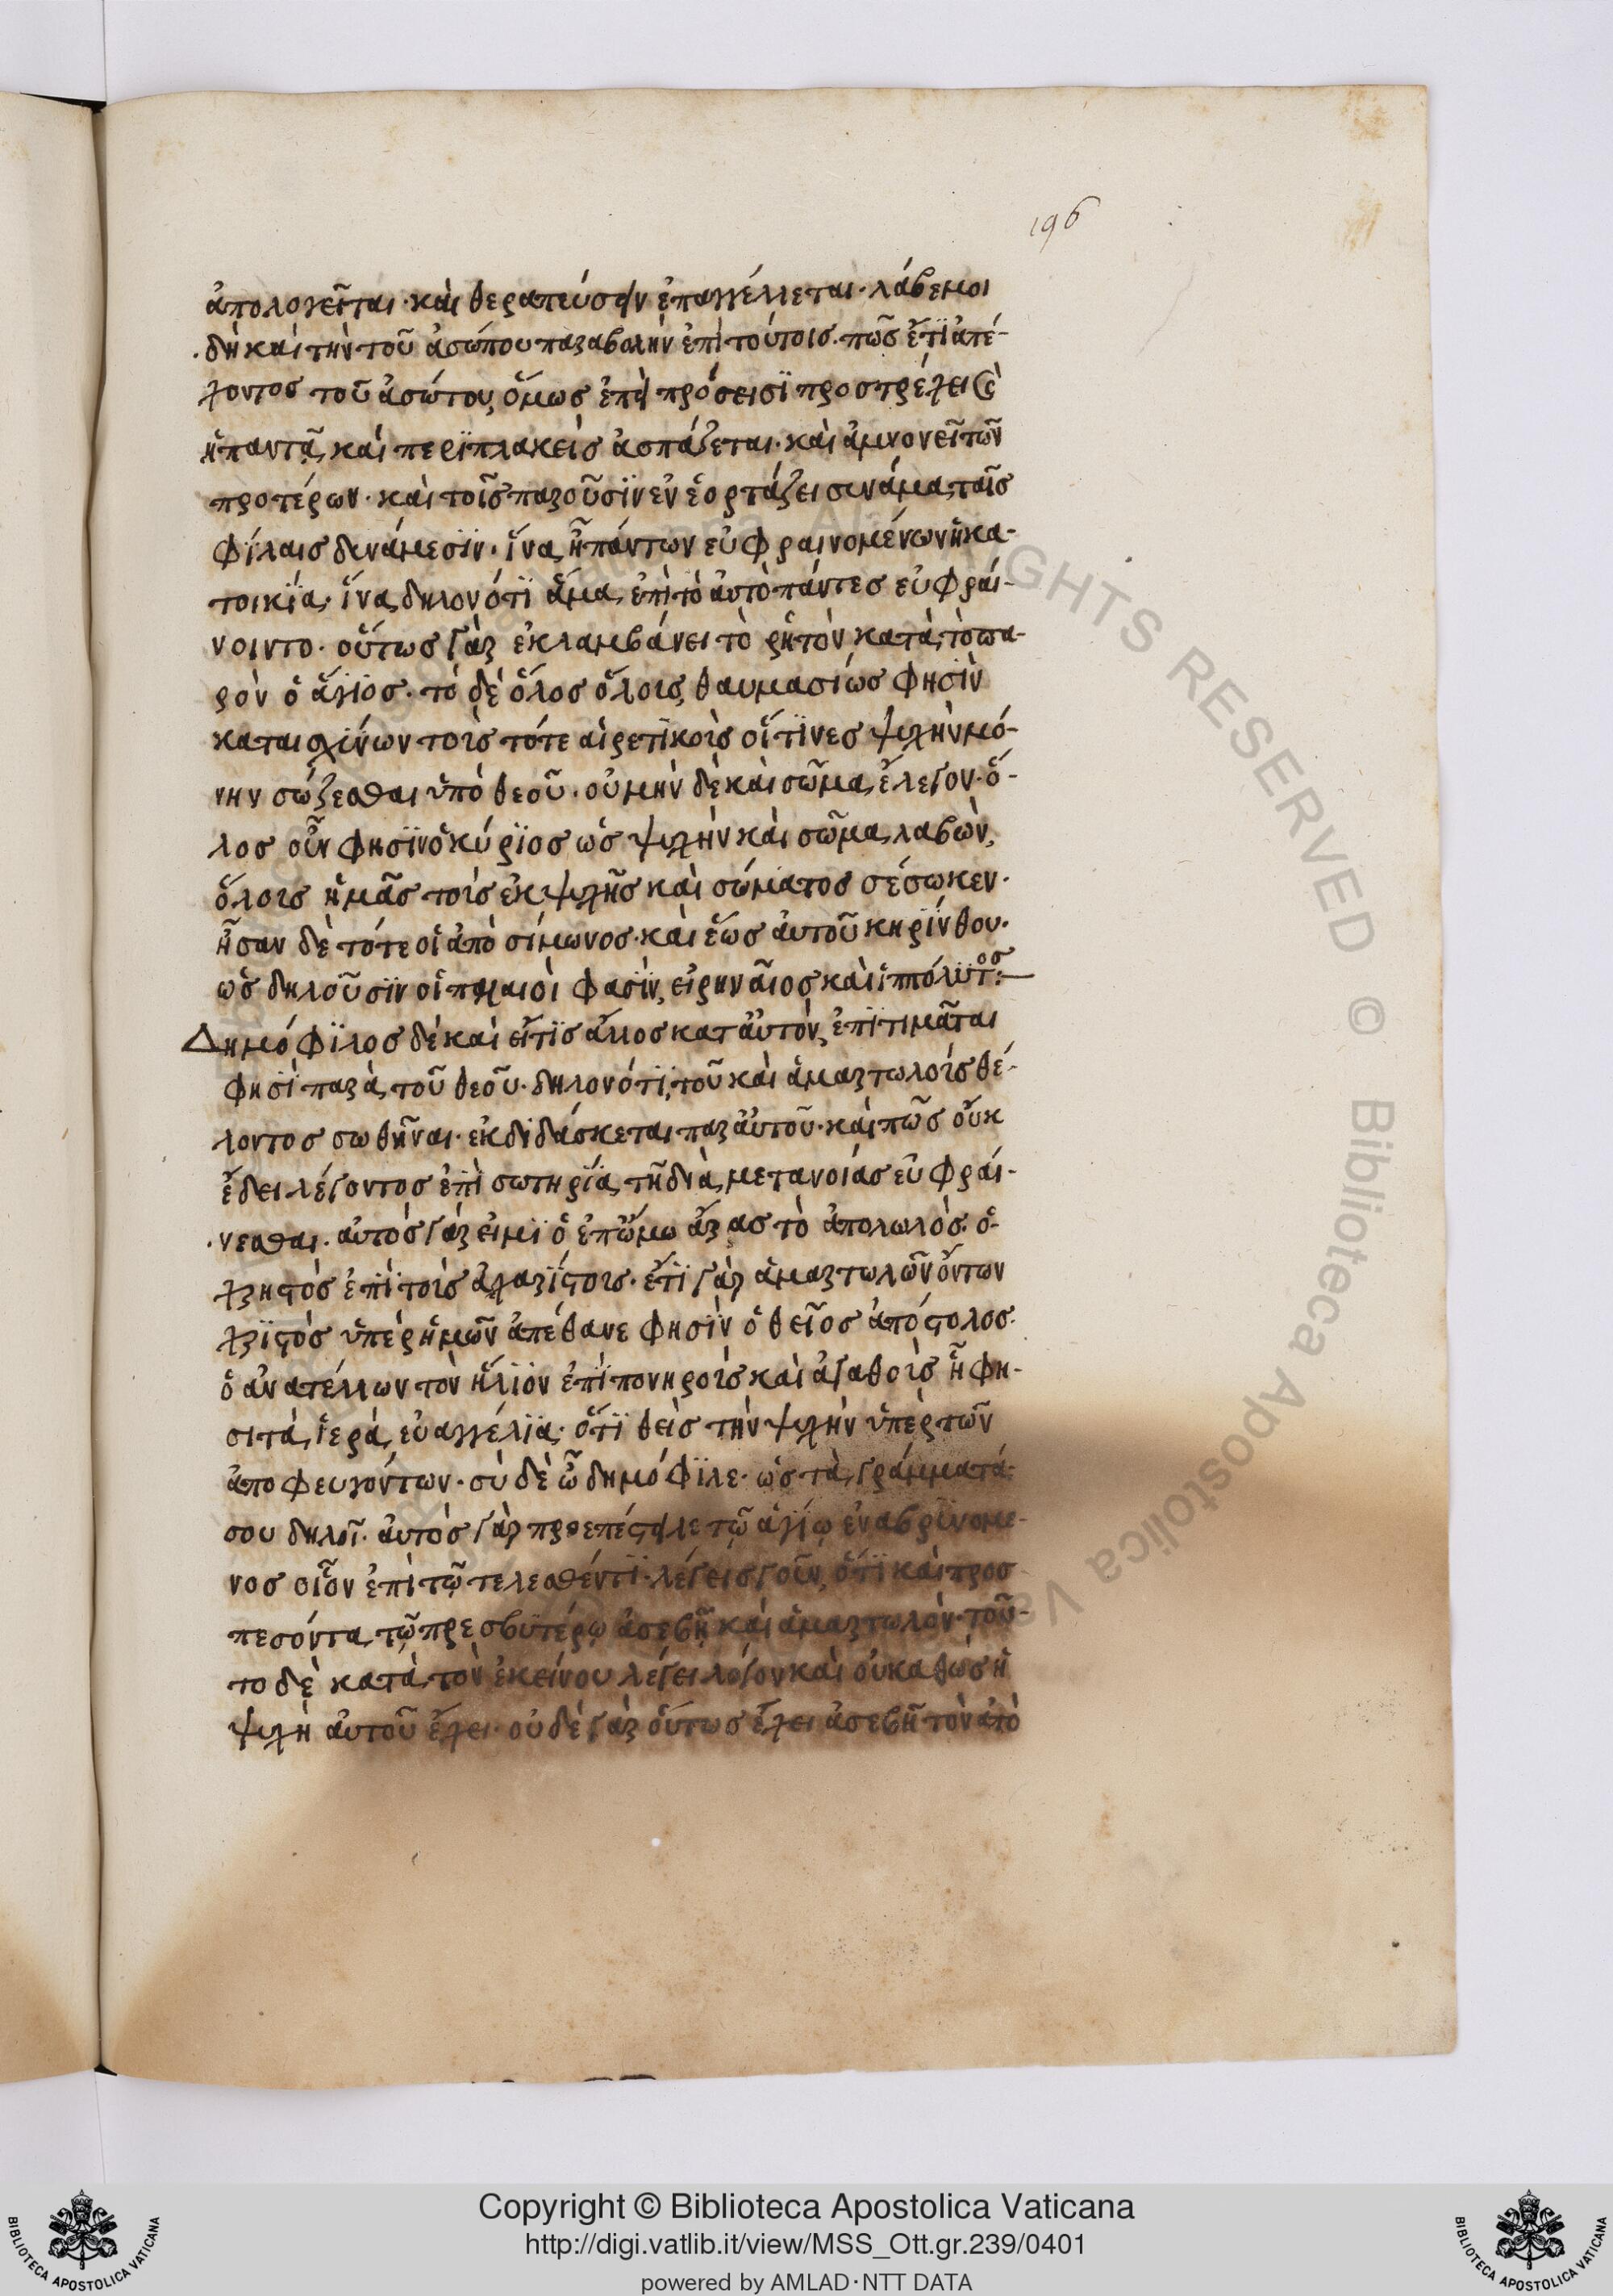 196
ἀπολογεῖται· καὶ θεραπεύσειν ἐπαγγέλλεται· λάβε μοι
δὴ καὶ τὴν τοῦ ἀσώπου παραβολὴν ἐπὶ τούτοις. πῶς ἔτϊ ἀπέ-
χοντος τοῦ ἀσώτου, ὅμως ἐπεὶ πρόσεισϊ προστρέχει
ὑπαντᾷ, καὶ περϊπλακεὶς ἀσπάζεται· καὶ ἀμνονεῖ τῶν
προτέρων· καὶ τοῖς παροῦσϊν ἐν ἑορτάζει συνάμα ταῖς
φίλαις δυνάμεσϊν· ἵνα ᾖ πάντων εὐφραινομένων ἡ κα-
τοικϊα· ἵνα δηλονότϊ ἅμα ἐπϊ τὸ αὐτὸ πάντες εὐφραί-
νοιντο· οὕτως γὰρ ἐκλαμβάνει τὸ ῥητὸν κατὰ τὸ πα-
ρὸν ὁ ἅγϊος· τὸ δὲ ὅλος ὅλοις, θαυμασίως φησϊν
καταισχύνων τοὺς τότε αἱρετϊκοὺς οἵτϊνες ψυχὴν μό-
νην σώζεσθαι ὑπὸ θεοῦ· οὐ μὴν δὲ καὶ σῶμα ἔλεγον· ὅ-
λος οὖν φησϊν ὁ κύρϊος ὡς ψυχὴν καὶ σῶμα λαβὼν,
ὅλους ἡμᾶς τοὺς ἐκ ψυχῆς καὶ σώματος σέσωκεν·
ἦσαν δὲ τότε οἱ ἀπὸ σίμωνος· καὶ ἕως αὐτοῦ κηρίνθου·
ὡς δηλοῦσϊν οἱ παλαιοὶ φασϊν, εἰρηναῖος καὶ ἱππόλϋτος:
Δημόφϊλος δὲ καὶ εἴτϊς ἄλλος κατ αὐτὸν, ἐπϊτιμᾶται
φησϊ παρὰ τοῦ θεοῦ· δηλονότϊ, τοῦ καὶ ἁμαρτωλοὺς θέ-
λοντος σωθῆναι· ἐκδϊδάσκεται παρ αὐτοῦ· καὶ πῶς οὐκ
ἔδει λέγοντος ἐπὶ σωτηρϊᾳ τῇ διὰ μετανοίας εὐφραί-
νεσθαι· αὐτὸς γάρ εἰμϊ ὁ ἐπ ὤμω ἄρας τὸ ἀπολωλὸς· ὁ
χρηστὸς ἐπϊ τοὺς ἀχαρϊστους· ἔτϊ γὰρ ἁμαρτωλῶν ὄντων
χρϊστὸς ὑπὲρ ἡμῶν ἀπέθανε φησϊν ὁ θεῖος ἀπόστολος·
ὁ ἀνατέλλων τὸν ἥλϊον ἐπϊ πονηροὺς καὶ ἀγαθοὺς ᾗ φη-
σι τὰ ἱερὰ εὐαγγέλϊα· ὅτϊ θεὶς τὴν ψυχὴν ὑπὲρ τῶν
ἀποφευγόντων· σὺ δὲ ὦ δημόφϊλε· ὡς τὰ γράμματά
σου δηλοῖ· αὐτὸς γὰρ προεπέστειλε τῷ ἁγϊῳ ἐναβρϋνομε-
νος οἷον ἐπὶ τῷ τελεσθέντϊ· λέγεις γοῦν, ὅτϊ καὶ προσ
πεσόντα τῷ πρεσβϋτέρῳ ἀσεβῆ καὶ ἁμαρτωλὸν· τοῦ-
το δὲ κατὰ τὸν ἐκείνου λέγει λόγον καὶ οὐ καθὼς ἡ
ψυχὴ αὐτοῦ ἔχει· οὐδὲ γὰρ οὕτως ἔχει ἀσεβῆ τὸν ἀπὸ
© Biblioteca Apostolica Vaticana
RIGHTS RESERVED
Copyright © Biblioteca Apostolica Vaticana
http://digi.vatlib.it/view/MSS_Ott.gr.239/0401
powered by AMLAD·NTT DATA
BIBLIOTECA APOSTOLICA VATICANA
BIBLIOTECA APOSTOLICA VATICANA